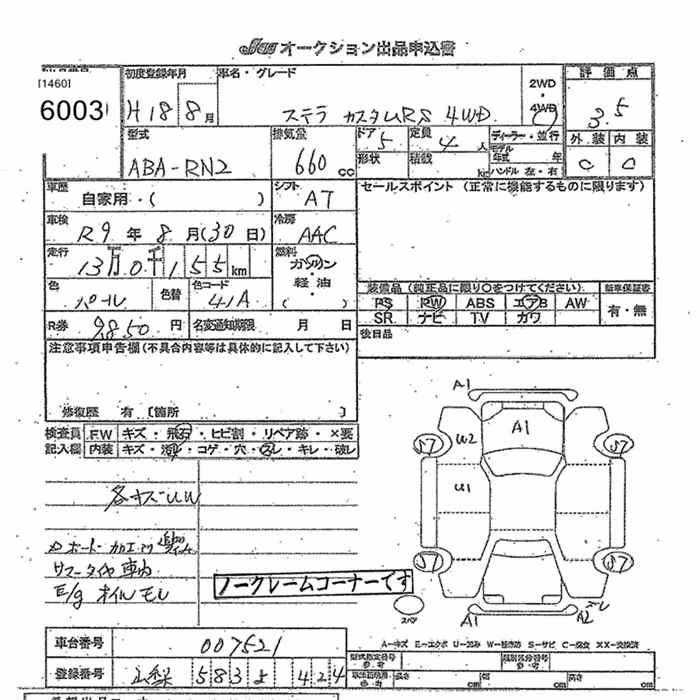 JU オークション出品申込書
[1460]
6003
初度登録年月
H18 8月
車名・グレード
ステラ カスタムRS 4WD
2WD
・
4WD
評価点
3.5
型式
ABA-RN2
排気量
660 cc
ドア 5
定員 4 人
ディーラー・並行
モデル年式 年
形状
積載 kg
ハンドル 左・右
外装 内装
C C
車歴
自家用・( )
シフト
AT
セールスポイント (正常に機能するものに限ります)
車検
R9年8月(30日)
冷房
AAC
走行
13万0千155km
燃料
ガソリン・
軽油・
( )
色
パール
色替
色コード
41A
装備品 (純正品に限り○をつけてください)
PS PW ABS エアB AW
SR ナビ TV カワ
新車保証書
有・無
R券 9850円
名変通知期限 月 日
後日品
注意事項申告欄(不具合内容等は具体的に記入して下さい)
修復歴 有 〔箇所 〕
検査員記入欄
FW キズ・飛石・ヒビ割・リペア跡・×要
内装 キズ・汚れ・コゲ・穴・スレ・キレ・破レ
各キズUW
サマータイヤ 車内
E/g オイルモレ
ノークレームコーナーです
A1
A1
W2
U1
S7
S7
S7
S7
スペア
A1
A2
ズレ
A-キズ E-エクボ U-凹み W-補修跡 S-サビ C-腐食 XX-交換済
車台番号 007521
型式指定番号
参考
類別区分番号
参考
登録番号
583
424
長さ cm 幅 cm 高さ cm